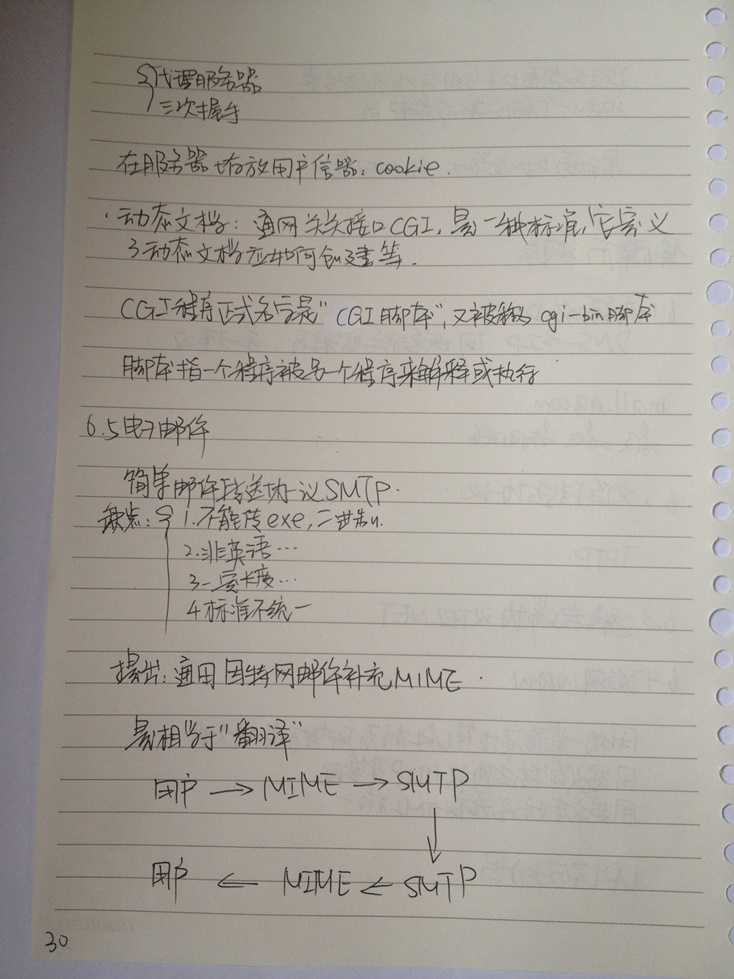 代理服务器
三次握手
在服务器存放用户信息:cookie.
·动态文档:通网关关接口CGI,是一种标准,它定义
了动态文档应如何创建等.
CGI程序正式名字是"CGI脚本",又被称为cgi-bin脚本
脚本指一个程序被另一个程序来解释或执行
6.5电子邮件
简单邮件传送协议SMTP.
缺点:1.不能传exe,二进制
2.非英语…
3.一定长度…
4.标准不统一
提出:通用因特网邮件补充MIME.
是相当于"翻译"
用户→MIME→SMTP
↓
用户←MIME←SMTP
30